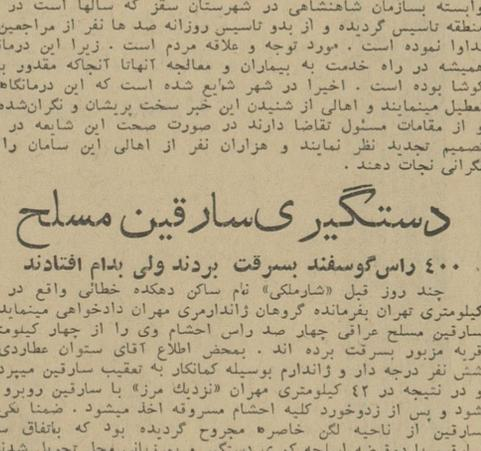 وابسته بسازمان شاهنشاهی در شهرستان سقز که سالها است در
منطقه تاسیس گردیده و از بدو تاسیس روزانه صد ها نفر از مراجعین
مداوا نموده است . مورد توجه و علاقه مردم است . زیرا این درمانگاه
همیشه در راه خدمت به بیماران و معالجه آنهاتا آنجاکه مقدور بوده
کوشا بوده است . اخیرا در شهر شایع شده است که این درمانگاه
تعطیل مینمایند و اهالی از شنیدن این خبر سخت پریشان و نگران‌شده
و از مقامات مسئول تقاضا دارند در صورت صحت این شایعه در
تصمیم تجدید نظر نمایند و هزاران نفر از اهالی این سامان را
نگرانی نجات دهند .
دستگیری سارقین مسلح
۴۰۰ راس گوسفند بسرقت بردند ولی بدام افتادند
چند روز قبل «شارملکی» نام ساکن دهکده خطائی واقع در
کیلومتری تهران بفرمانده گروهان ژاندارمری مهران دادخواهی مینماید
سارقین مسلح عراقی چهار صد راس احشام وی را از چهار کیلومتری
قریه مزبور بسرقت برده اند . بمحض اطلاع آقای ستوان عطاردی
شش نفر درجه دار و ژاندارم بوسیله کمانکار به تعقیب سارقین میپردازد
و در نتیجه در ۴۲ کیلومتری مهران «نزدیك مرز» با سارقین روبرو
شود و پس از زدوخورد کلیه احشام مسروقه اخذ میشود . ضمنا یکی
سارقین از ناحیه لگن خاصره مجروح گردیده بود که باتفاق